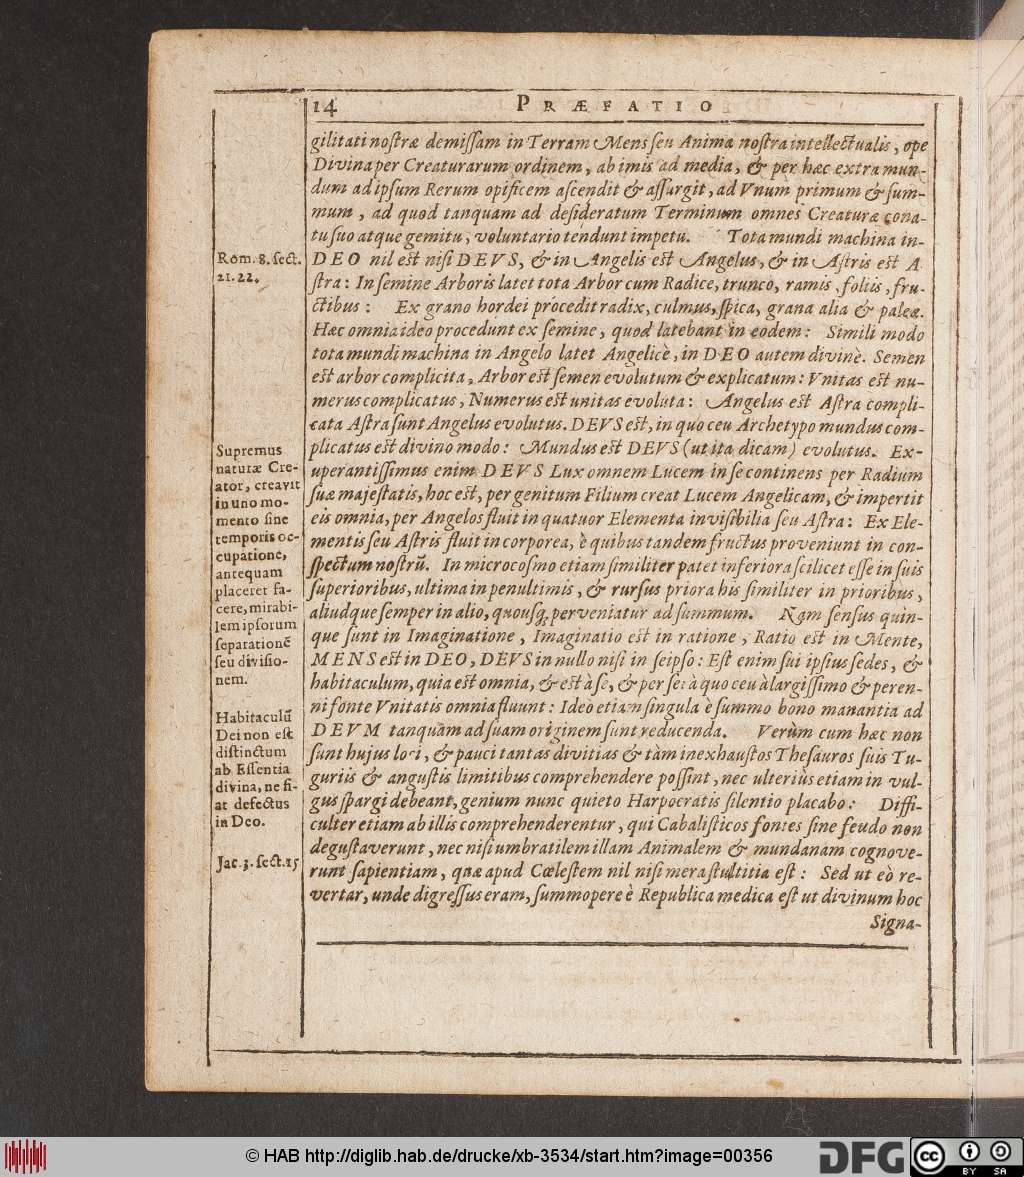 14 PRÆFATIO
gilitati noſtræ demiſſam in Terram Mens ſeu Anima noſtra intellectualis, ope
Divina per Creaturarum ordinem, ab imis ad media, & per hæc extra mun-
dum ad ipſum Rerum opificem aſcendit & aſſurgit, ad Vnum primum & ſum-
mum, ad quod tanquam ad deſideratum Terminum omnes Creaturæ cona-
tu ſuo atque gemitu, voluntario tendunt impetu. Tota mundi machina in-
DEO nil eſt niſi DEVS, & in Angelis eſt Angelus, & in Aſtris eſt A
ſtra: In ſemine Arboris latet tota Arbor cum Radice, trunco, ramis, foliis, fru-
ctibus: Ex grano hordei procedit radix, culmus, ſpica, grana alia & paleæ.
Hæc omnia ideo procedunt ex ſemine, quod latebant in eodem: Simili modo
tota mundi machina in Angelo latet Angelicè, in DEO autem divinè. Semen
eſt arbor complicita, Arbor eſt ſemen evolutum & explicatum: Vnitas eſt nu-
merus complicatus, Numerus eſt unitas evoluta: Angelus eſt Aſtra compli-
cata Aſtra ſunt Angelus evolutus. DEVS eſt, in quo ceu Archetypo mundus com-
plicatus eſt divino modo: Mundus eſt DEVS (ut ita dicam) evolutus. Ex-
uperantiſſimus enim DEVS Lux omnem Lucem in ſe continens per Radium
ſuæ majeſtatis, hoc eſt, per genitum Filium creat Lucem Angelicam, & impertit
eis omnia, per Angelos fluit in quatuor Elementa inviſibilia ſeu Aſtra: Ex Ele-
mentis ſeu Aſtris fluit in corporea, è quibus tandem fructus proveniunt in con-
ſpectum noſtrū. In microcoſmo etiam ſimiliter patet inferiora ſcilicet eſſe in ſuis
ſuperioribus, ultima in penultimis, & rurſus priora his ſimiliter in prioribus,
aliudque ſemper in alio, quousq; perveniatur ad ſummum. Nam ſenſus quin-
que ſunt in Imaginatione, Imaginatio eſt in ratione, Ratio eſt in Mente,
MENS eſt in DEO, DEVS in nullo niſi in ſeipſo: Eſt enim ſui ipſius ſedes, &
habitaculum, quia eſt omnia, & eſt à ſe, & per ſe: à quo ceu à largiſſimo & peren-
ni fonte Vnitatis omnia fluunt: Ideo etiam ſingula è ſummo bono manantia ad
DEVM tanquam ad ſuam originem ſunt reducenda. Verùm cum hæc non
ſunt hujus loci, & pauci tantas divitias & tàm inexhauſtos Theſauros ſuis Tu-
guriis & anguſtis limitibus comprehendere poſſint, nec ulteriùs etiam in vul-
gus ſpargi debeant, genium nunc quieto Harpocratis ſilentio placabo: Diffi-
culter etiam ab illis comprehenderentur, qui Cabaliſticos fontes ſine feudo non
deguſtaverunt, nec niſi umbratilem illam Animalem & mundanam cognove-
runt ſapientiam, quæ apud Cœleſtem nil niſi mera ſtultitia eſt: Sed ut eò re-
vertar, unde digreſſus eram, ſummopere è Republica medica eſt ut divinum hoc
Signa-
Rom. 8. ſect.
21. 22.
Supremus
naturæ Cre-
ator, creavit
in uno mo-
mento ſine
temporis oc-
cupatione,
antequam
placeret fa-
cere, mirabi-
lem ipſorum
ſeparationē
ſeu diviſio-
nem.
Habitaculū
Dei non eſt
diſtinctum
ab Eſſentia
divina, ne fi-
at defectus
in Deo.
Jac. 3. ſect. 15
© HAB http://diglib.hab.de/drucke/xb-3534/start.htm?image=00356
DFG
cc BY SA